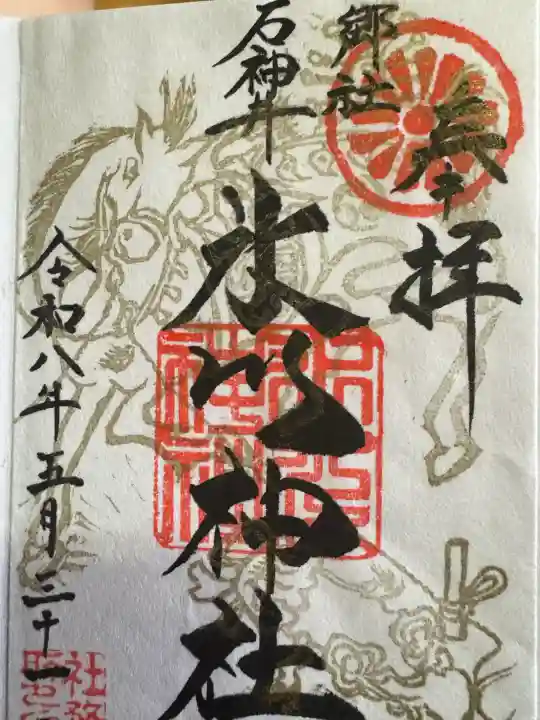 奉拝
郷社
石神井
氷川神社
令和八年五月三十一
社務